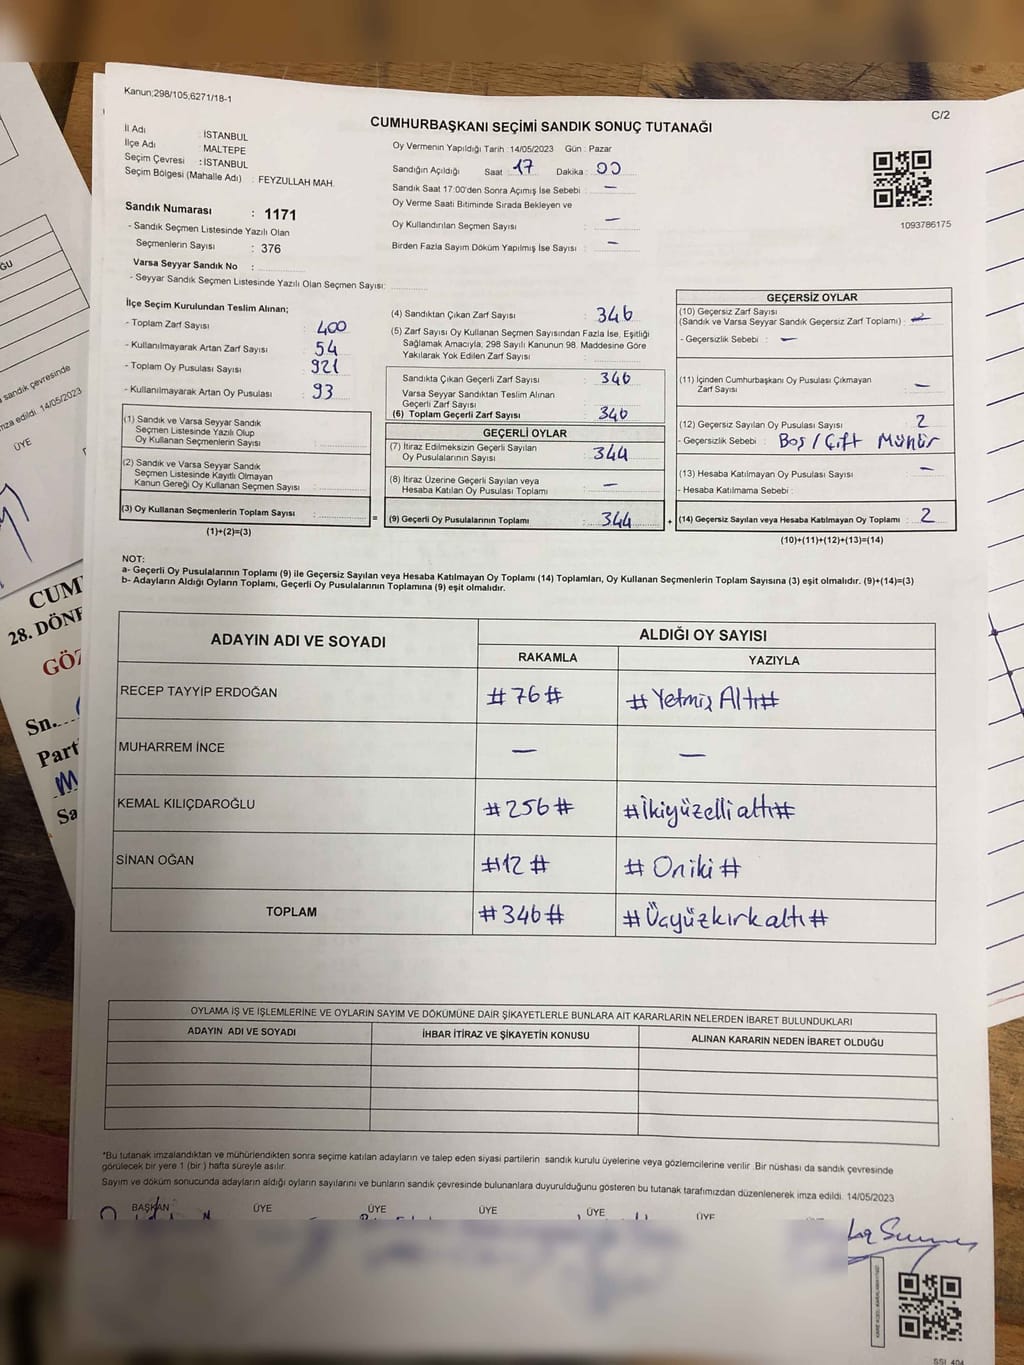 Kanun;298/105,6271/18-1
C/2
CUMHURBAŞKANI SEÇİMİ SANDIK SONUÇ TUTANAĞI
İl Adı : İSTANBUL
İlçe Adı : MALTEPE
Seçim Çevresi : İSTANBUL
Seçim Bölgesi (Mahalle Adı) : FEYZULLAH MAH.
Sandık Numarası : 1171
- Sandık Seçmen Listesinde Yazılı Olan
Seçmenlerin Sayısı : 376
Varsa Seyyar Sandık No :
- Seyyar Sandık Seçmen Listesinde Yazılı Olan Seçmen Sayısı:
Oy Vermenin Yapıldığı Tarih :14/05/2023 Gün : Pazar
Sandığın Açıldığı Saat : 17 Dakika : 00
Sandık Saat 17.00'den Sonra Açımış İse Sebebi : —
Oy Verme Saati Bitiminde Sırada Bekleyen ve
Oy Kullandırılan Seçmen Sayısı : —
Birden Fazla Sayım Döküm Yapılmış İse Sayısı : —
1093786175
İlçe Seçim Kurulundan Teslim Alınan;
- Toplam Zarf Sayısı : 400
- Kullanılmayarak Artan Zarf Sayısı : 54
- Toplam Oy Pusulası Sayısı : 921
- Kullanılmayarak Artan Oy Pusulası : 93
(1) Sandık ve Varsa Seyyar Sandık
Seçmen Listesinde Yazılı Olup
Oy Kullanan Seçmenlerin Sayısı :
(2) Sandık ve Varsa Seyyar Sandık
Seçmen Listesinde Kayıtlı Olmayan
Kanun Gereği Oy Kullanan Seçmen Sayısı :
(3) Oy Kullanan Seçmenlerin Toplam Sayısı :
(1)+(2)=(3)
(4) Sandıktan Çıkan Zarf Sayısı : 346
(5) Zarf Sayısı Oy Kullanan Seçmen Sayısından Fazla İse, Eşitliği
Sağlamak Amacıyla, 298 Sayılı Kanunun 98. Maddesine Göre
Yakılarak Yok Edilen Zarf Sayısı :
Sandıkta Çıkan Geçerli Zarf Sayısı : 346
Varsa Seyyar Sandıktan Teslim Alınan
Geçerli Zarf Sayısı :
(6) Toplam Geçerli Zarf Sayısı : 346
GEÇERLİ OYLAR
(7) İtiraz Edilmeksizin Geçerli Sayılan
Oy Pusulalarının Sayısı : 344
(8) İtiraz Üzerine Geçerli Sayılan veya
Hesaba Katılan Oy Pusulası Toplamı : —
= (9) Geçerli Oy Pusulalarının Toplamı : 344 +
GEÇERSİZ OYLAR
(10) Geçersiz Zarf Sayısı
(Sandık ve Varsa Seyyar Sandık Geçersiz Zarf Toplamı) :
- Geçersizlik Sebebi : —
(11) İçinden Cumhurbaşkanı Oy Pusulası Çıkmayan
Zarf Sayısı : —
(12) Geçersiz Sayılan Oy Pusulası Sayısı : 2
- Geçersizlik Sebebi : Boş / Çift Mühür
(13) Hesaba Katılmayan Oy Pusulası Sayısı : —
- Hesaba Katılmama Sebebi :
(14) Geçersiz Sayılan veya Hesaba Katılmayan Oy Toplamı : 2
(10)+(11)+(12)+(13)=(14)
NOT:
a- Geçerli Oy Pusulalarının Toplamı (9) ile Geçersiz Sayılan veya Hesaba Katılmayan Oy Toplamı (14) Toplamları, Oy Kullanan Seçmenlerin Toplam Sayısına (3) eşit olmalıdır. (9)+(14)=(3)
b- Adayların Aldığı Oyların Toplamı, Geçerli Oy Pusulalarının Toplamına (9) eşit olmalıdır.
ADAYIN ADI VE SOYADI
ALDIĞI OY SAYISI
RAKAMLA YAZIYLA
RECEP TAYYİP ERDOĞAN #76# #Yetmiş Altı#
MUHARREM İNCE — —
KEMAL KILIÇDAROĞLU #256# #İkiyüzelli altı#
SİNAN OĞAN #12# #Oniki#
TOPLAM #346# #Üçyüzkırkaltı#
OYLAMA İŞ VE İŞLEMLERİNE VE OYLARIN SAYIM VE DÖKÜMÜNE DAİR ŞİKAYETLERLE BUNLARA AİT KARARLARIN NELERDEN İBARET BULUNDUKLARI
ADAYIN ADI VE SOYADI İHBAR İTİRAZ VE ŞİKAYETİN KONUSU ALINAN KARARIN NEDEN İBARET OLDUĞU
*Bu tutanak imzalandıktan ve mühürlendikten sonra seçime katılan adayların ve talep eden siyasi partilerin sandık kurulu üyelerine veya gözlemcilerine verilir .Bir nüshası da sandık çevresinde
görülecek bir yere 1 (bir ) hafta süreyle asılır.
Sayım ve döküm sonucunda adayların aldığı oyların sayılarını ve bunların sandık çevresinde bulunanlara duyurulduğunu gösteren bu tutanak tarafımızdan düzenlenerek imza edildi. 14/05/2023
BAŞKAN ÜYE ÜYE ÜYE ÜYE ÜYE
sandık çevresinde
imza edildi. 14/05/2023
ÜYE
CUM
28. DÖNE
GÖZ
Sn.
Parti
Sa